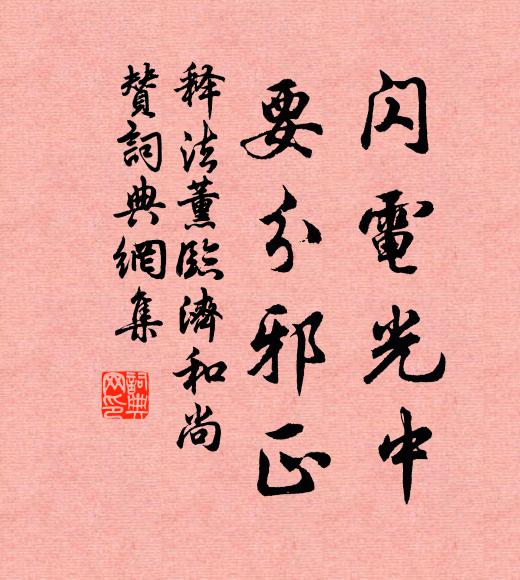 闪電光中
要分邪正
释法薰臨濟和尚
贊詞典網集
詞典
网印